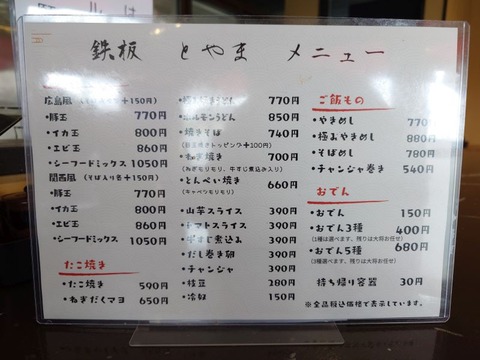 鉄板 とやま メニュー
広島風 (そば入り各+150円)
・豚玉 770円
・イカ玉 800円
・エビ玉 860円
・シーフードミックス 1050円
関西風 (そば入り各+150円)
・豚玉 770円
・イカ玉 800円
・エビ玉 860円
・シーフードミックス 1050円
たこ焼き
・たこ焼き 590円
・ねぎだくマヨ 650円
うどん 770円
・ホルモンうどん 850円
・焼きそば 740円
(目玉焼きトッピング+100円)
・ねぎ焼き 700円
(ねぎモリモリ、牛すじ煮込み入り)
・とんぺい焼き 660円
(キャベツモリモリ)
・山芋スライス 390円
・トマトスライス 390円
・牛すじ煮込み 390円
・だし巻き卵 390円
・チャンジャ 390円
・枝豆 280円
・冷奴 150円
ご飯もの
・やきめし 770
・極みやきめし 880円
・そばめし 780円
・チャンジャ巻き 540円
おでん
・おでん 150円
・おでん3種 400円
(1種は選べます、残りは大将お任せ)
・おでん5種 680円
(3種選べます、残りは大将お任せ)
持ち帰り容器 30円
※全品税込価格で表示しています。